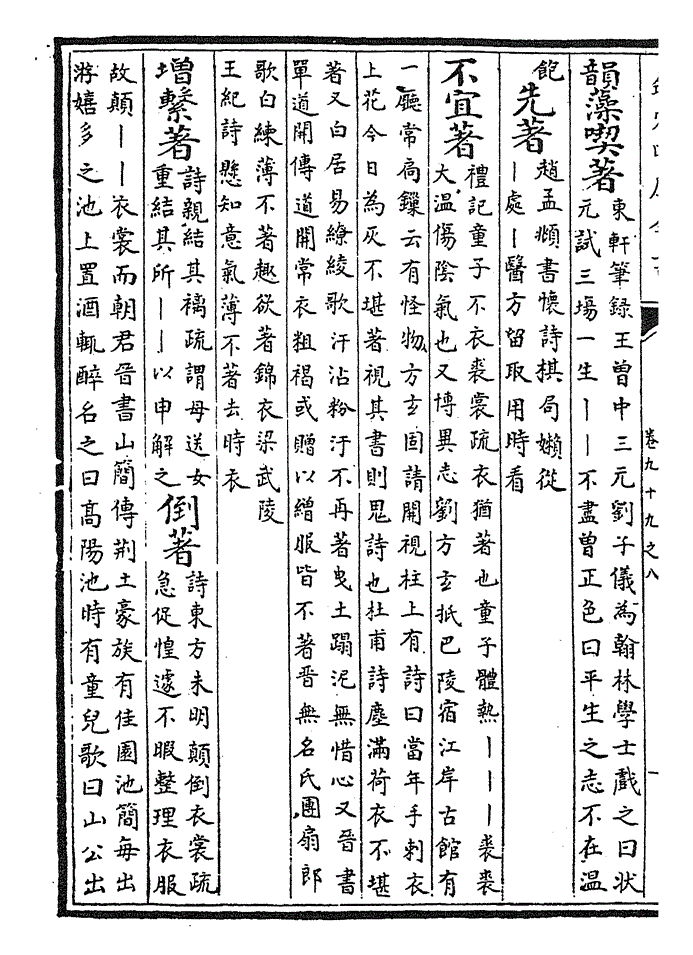 卷九十九之八
一
韻藻喫著
東軒筆録王曾中三元劉子儀為翰林學士戲之曰状
元試三場一生丨丨不盡曾正色曰平生之志不在温
飽
先著
趙孟頫書懷詩棋局嬾從
丨處丨醫方留取用時看
不宜著
禮記童子不衣裘裳疏衣猶著也童子體熱丨丨丨裘裘
大温傷陰氣也又博異志劉方玄抵巴陵宿江岸古館有
一廳常扄鏁云有怪物方玄固請開視柱上有詩曰當年手刺衣
上花今日為灰不堪著視其書則鬼詩也杜甫詩塵滿荷衣不堪
著又白居易繚綾歌汗沾粉汙不再著曳土蹋泥無惜心又晉書
單道開傳道開常衣粗褐或贈以繒服皆不著晉無名氏團扇郎
歌白練薄不著趣欲著錦衣梁武陵
王紀詩懸知意氣薄不著去時衣
增繫著
詩親結其褵疏謂母送女
重結其所丨丨以申解之
倒著
詩東方未明顛倒衣裳疏
急促惶遽不暇整理衣服
故顛丨丨衣裳而朝君晉書山簡傳荆土豪族有佳園池簡每出
游嬉多之池上置酒輒醉名之曰高陽池時有童兒歌曰山公出